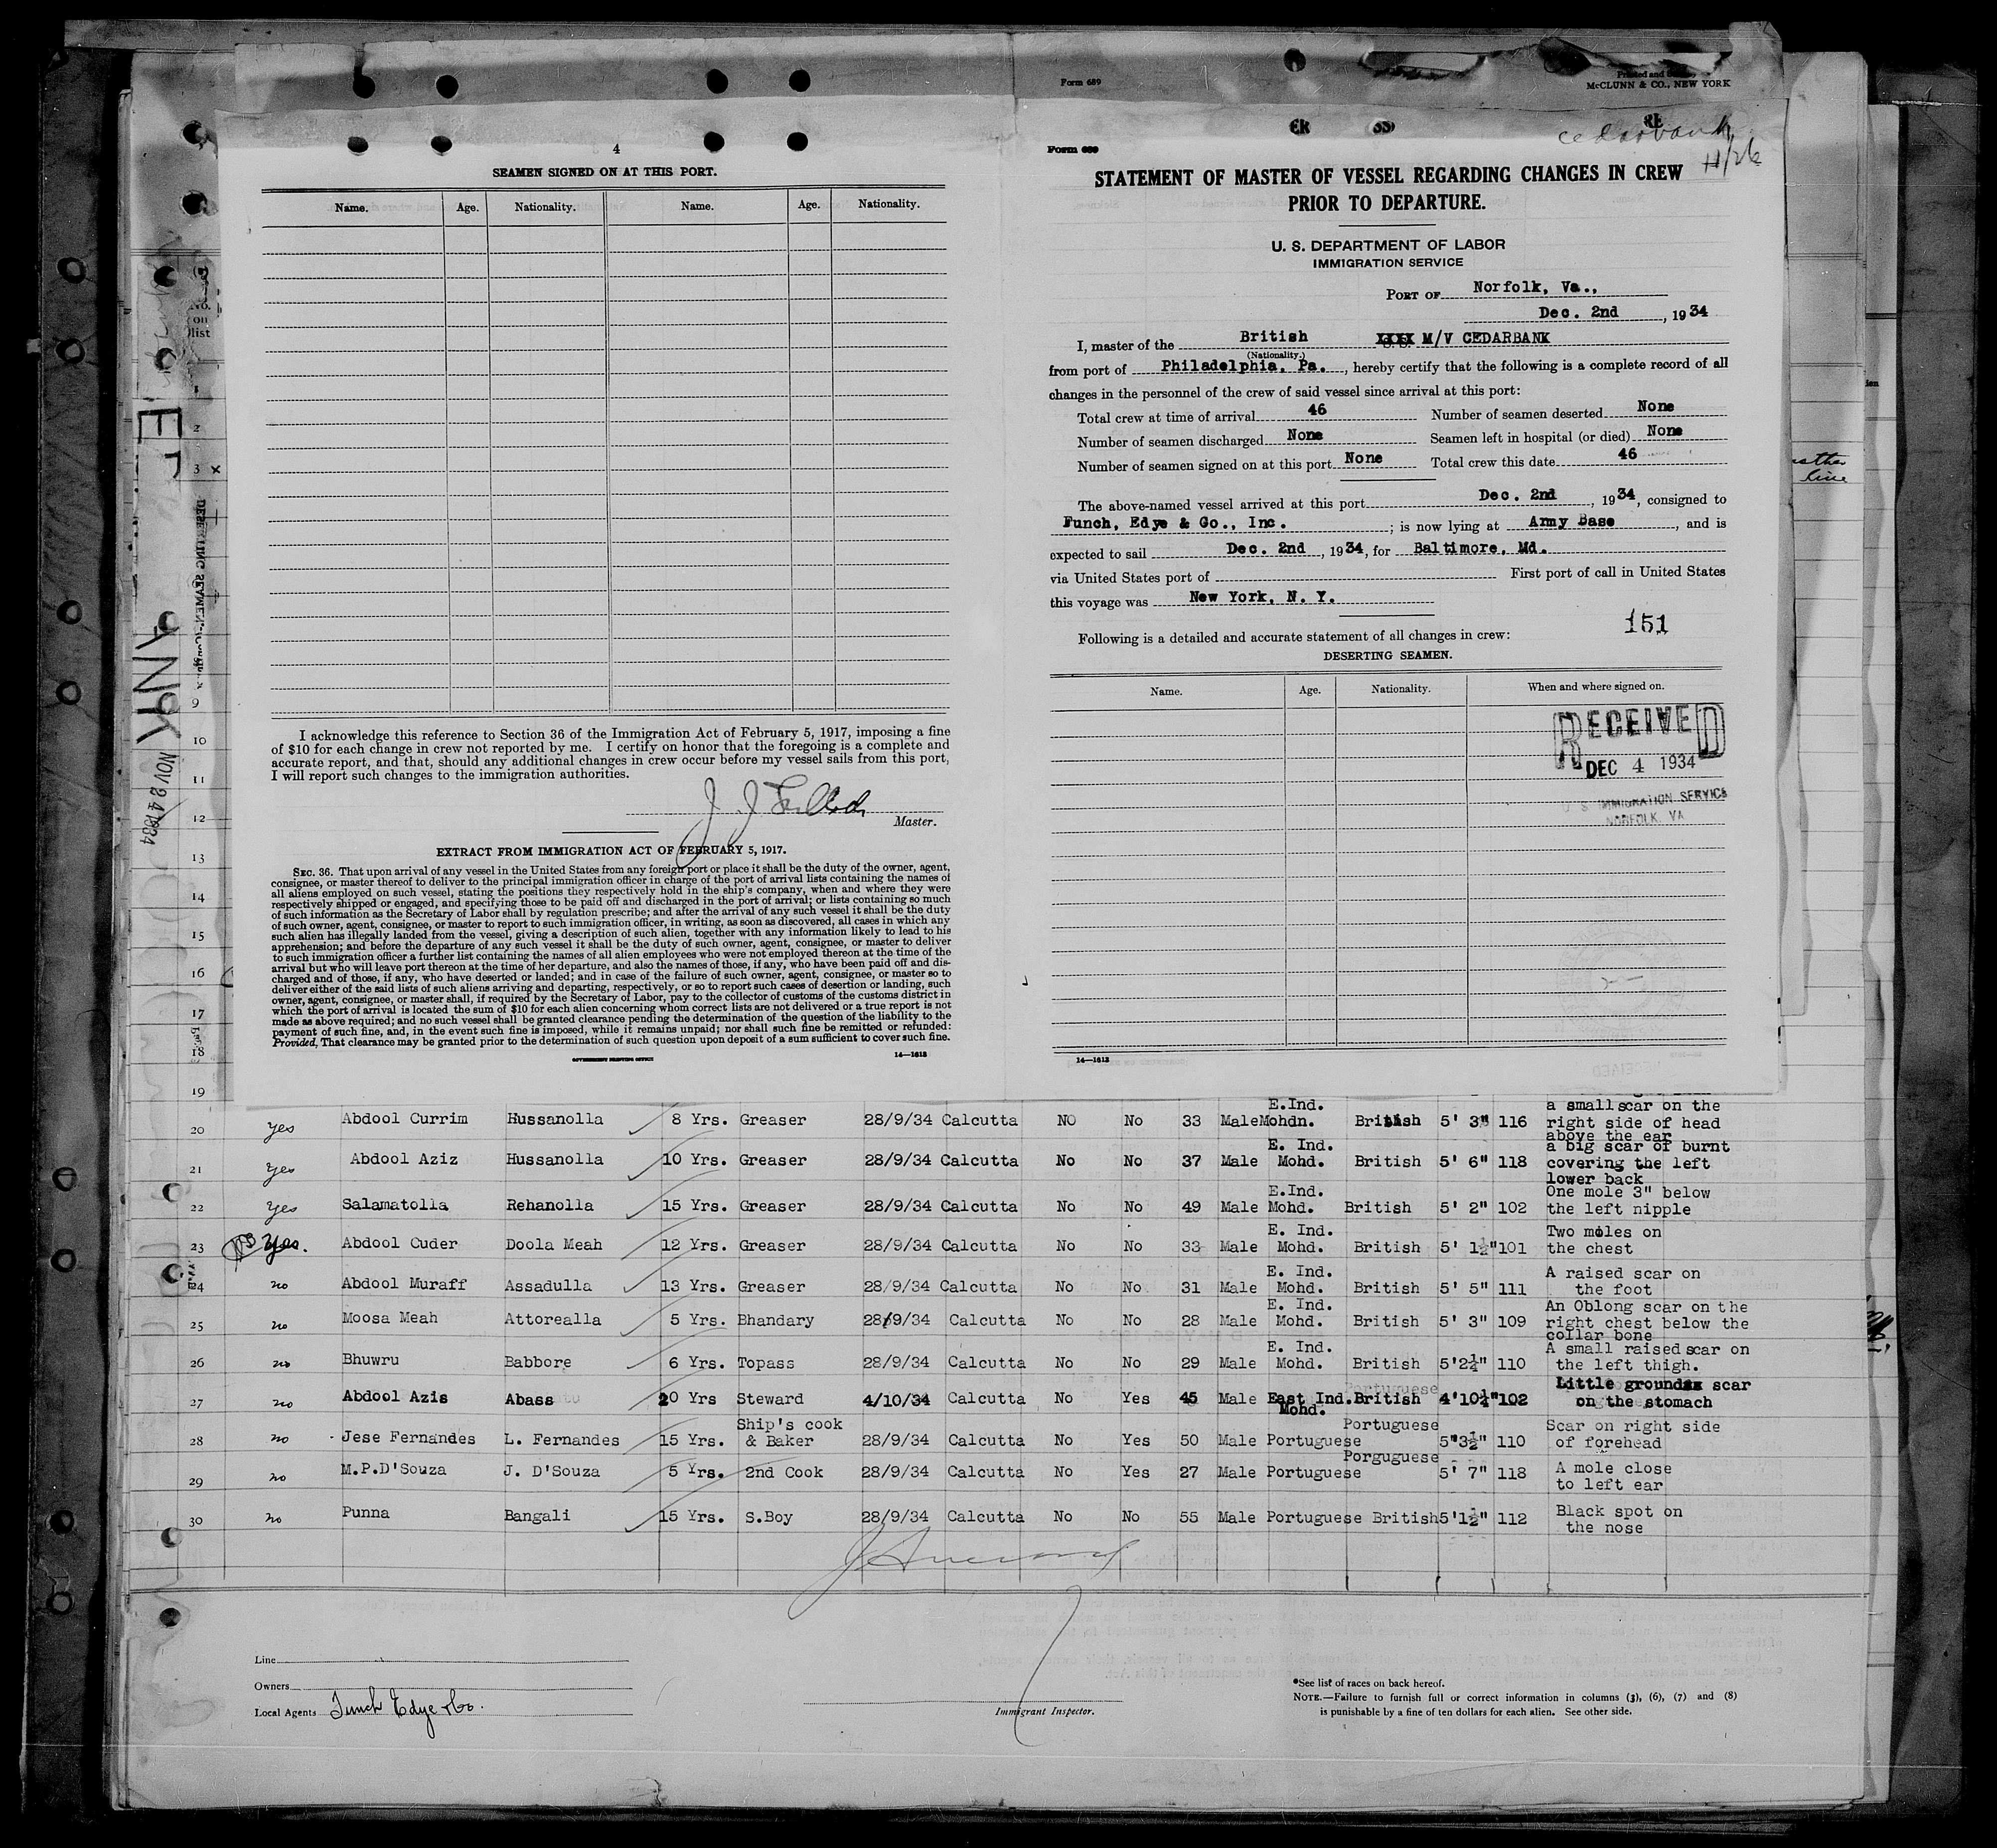 4
SEAMEN SIGNED ON AT THIS PORT.
Name. Age. Nationality. Name. Age. Nationality.
I acknowledge this reference to Section 36 of the Immigration Act of February 5, 1917, imposing a fine
of $10 for each change in crew not reported by me. I certify on honor that the foregoing is a complete and
accurate report, and that, should any additional changes in crew occur before my vessel sails from this port,
I will report such changes to the immigration authorities.
Master.
EXTRACT FROM IMMIGRATION ACT OF FEBRUARY 5, 1917.
SEC. 36. That upon arrival of any vessel in the United States from any foreign port or place it shall be the duty of the owner, agent,
consignee, or master thereof to deliver to the principal immigration officer in charge of the port of arrival lists containing the names of
all aliens employed on such vessel, stating the positions they respectively hold in the ship's company, when and where they were
respectively shipped or engaged, and specifying those to be paid off and discharged in the port of arrival; or lists containing so much
of such information as the Secretary of Labor shall by regulation prescribe; and after the arrival of any such vessel it shall be the duty
of such owner, agent, consignee, or master to report to such immigration officer, in writing, as soon as discovered, all cases in which any
such alien has illegally landed from the vessel, giving a description of such alien, together with any information likely to lead to his
apprehension; and before the departure of any such vessel it shall be the duty of such owner, agent, consignee, or master to deliver
to such immigration officer a further list containing the names of all alien employees who were not employed thereon at the time of the
arrival but who will leave port thereon at the time of her departure, and also the names of those, if any, who have been paid off and dis-
charged and of those, if any, who have deserted or landed; and in case of the failure of such owner, agent, consignee, or master so to
deliver either of the said lists of such aliens arriving and departing, respectively, or so to report such cases of desertion or landing, such
owner, agent, consignee, or master shall, if required by the Secretary of Labor, pay to the collector of customs of the customs district in
which the port of arrival is located the sum of $10 for each alien concerning whom correct lists are not delivered or a true report is not
made as above required; and no such vessel shall be granted clearance pending the determination of the question of the liability to the
payment of such fine, and, in the event such fine is imposed, while it remains unpaid; nor shall such fine be remitted or refunded:
Provided, That clearance may be granted prior to the determination of such question upon deposit of a sum sufficient to cover such fine.
GOVERNMENT PRINTING OFFICE 14—1613
Form 689
McCLUNN & CO., NEW YORK
Cedarbank
Form 689
STATEMENT OF MASTER OF VESSEL REGARDING CHANGES IN CREW
PRIOR TO DEPARTURE.
U. S. DEPARTMENT OF LABOR
IMMIGRATION SERVICE
PORT OF Norfolk, Va.,
Dec. 2nd, 1934
I, master of the British M/V CEDARBANK
(Nationality.)
from port of Philadelphia, Pa., hereby certify that the following is a complete record of all
changes in the personnel of the crew of said vessel since arrival at this port:
Total crew at time of arrival 46 Number of seamen deserted None
Number of seamen discharged None Seamen left in hospital (or died) None
Number of seamen signed on at this port None Total crew this date 46
The above-named vessel arrived at this port Dec. 2nd, 1934, consigned to
Funch, Edye & Co., Inc.; is now lying at Army Base, and is
expected to sail Dec. 2nd, 1934, for Baltimore, Md.
via United States port of First port of call in United States
this voyage was New York, N. Y.
151
Following is a detailed and accurate statement of all changes in crew:
DESERTING SEAMEN.
Name. Age. Nationality. When and where signed on.
RECEIVED
DEC 4 1934
U S IMMIGRATION SERVICE
NORFOLK, VA
14—1613
No.
on
list
NOV 24 1934
2
3 x
9
10
11
12
13
14
15
16
17
18
19
20 yes Abdool Currim Hussanolla 8 Yrs. Greaser 28/9/34 Calcutta NO No 33 Male E.Ind. Mohdn. British 5' 3" 116 a small scar on the right side of head above the ear
21 yes Abdool Aziz Hussanolla 10 Yrs. Greaser 28/9/34 Calcutta No No 37 Male E. Ind. Mohd. British 5' 6" 118 a big scar of burnt covering the left lower back
22 yes Salamatolla Rehanolla 15 Yrs. Greaser 28/9/34 Calcutta No No 49 Male E.Ind. Mohd. British 5' 2" 102 One mole 3" below the left nipple
23 yes. Abdool Cuder Doola Meah 12 Yrs. Greaser 28/9/34 Calcutta No No 33 Male E. Ind. Mohd. British 5' 1½" 101 Two moles on the chest
24 no Abdool Muraff Assadulla 13 Yrs. Greaser 28/9/34 Calcutta No No 31 Male E. Ind. Mohd. British 5' 5" 111 A raised scar on the foot
25 no Moosa Meah Attorealla 5 Yrs. Bhandary 28/9/34 Calcutta No No 28 Male E. Ind. Mohd. British 5' 3" 109 An Oblong scar on the right chest below the collar bone
26 no Bhuwru Babbore 6 Yrs. Topass 28/9/34 Calcutta No No 29 Male E. Ind. Mohd. British 5'2¼" 110 A small raised scar on the left thigh.
27 no Abdool Azis Abass 20 Yrs Steward 4/10/34 Calcutta No Yes 45 Male East Ind. Mohd. British 4'10¼" 102 Little ground scar on the stomach
28 no Jese Fernandes L. Fernandes 15 Yrs. Ship's cook & Baker 28/9/34 Calcutta No Yes 50 Male Portuguese Portuguese 5"3½" 110 Scar on right side of forehead
29 no M.P.D'Souza J. D'Souza 5 Yrs. 2nd Cook 28/9/34 Calcutta No Yes 27 Male Portuguese Porguguese 5' 7" 118 A mole close to left ear
30 no Punna Bangali 15 Yrs. S.Boy 28/9/34 Calcutta No No 55 Male Portuguese British 5'1½" 112 Black spot on the nose
Line
Owners
Local Agents Funch Edye & Co.
Immigrant Inspector.
*See list of races on back hereof.
NOTE.—Failure to furnish full or correct information in columns (3), (6), (7) and (8)
is punishable by a fine of ten dollars for each alien. See other side.